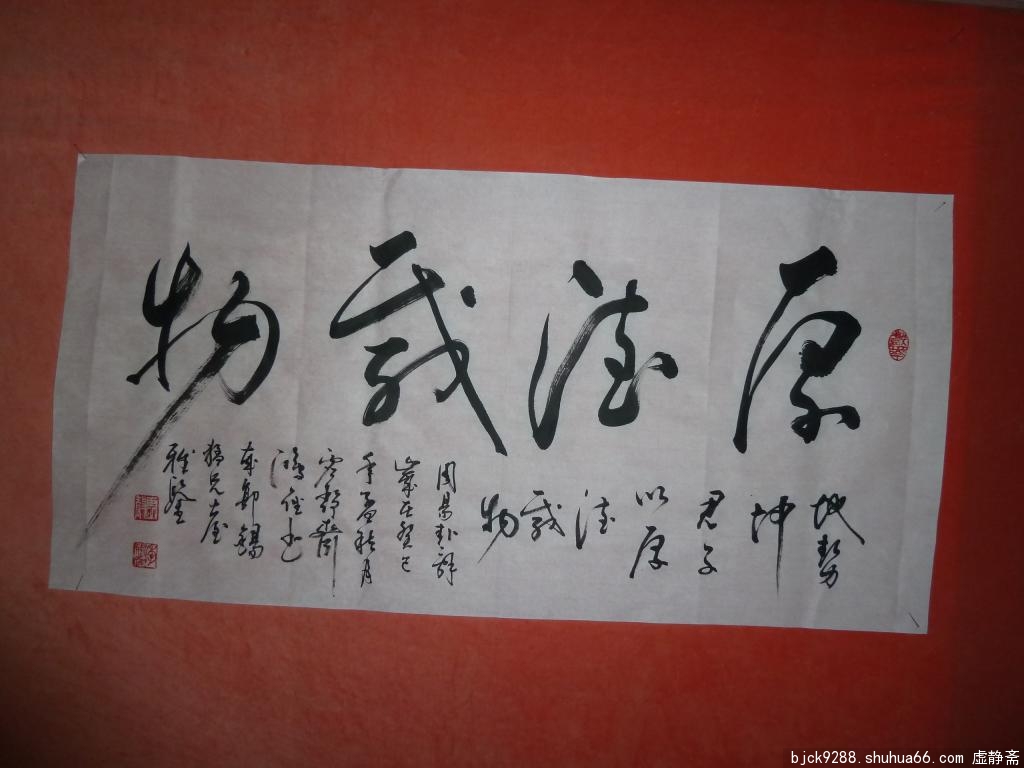 厚德载物
地势
坤
君子
以厚
德
载
物
周易卦辞
岁在癸巳
年孟秋月
虚静斋
雅鉴
bjck9288.shuhua66.com 虚静斋